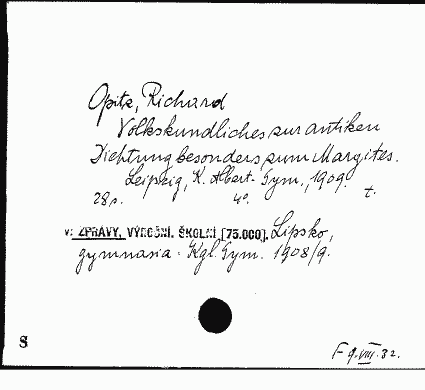 Opitz, Richard
Volkskundliches zur antiken
Dichtung besonders zum Margites.
Leipzig, K. Albert-Gym., 1909.
28 s. 4°. t.
v: ZPRÁVY, VÝROČNÍ. ŠKOLNÍ [75.000]. Lipsko,
gymnasia. Kgl. Gym. 1908/9.
S
F 9.VIII.32.